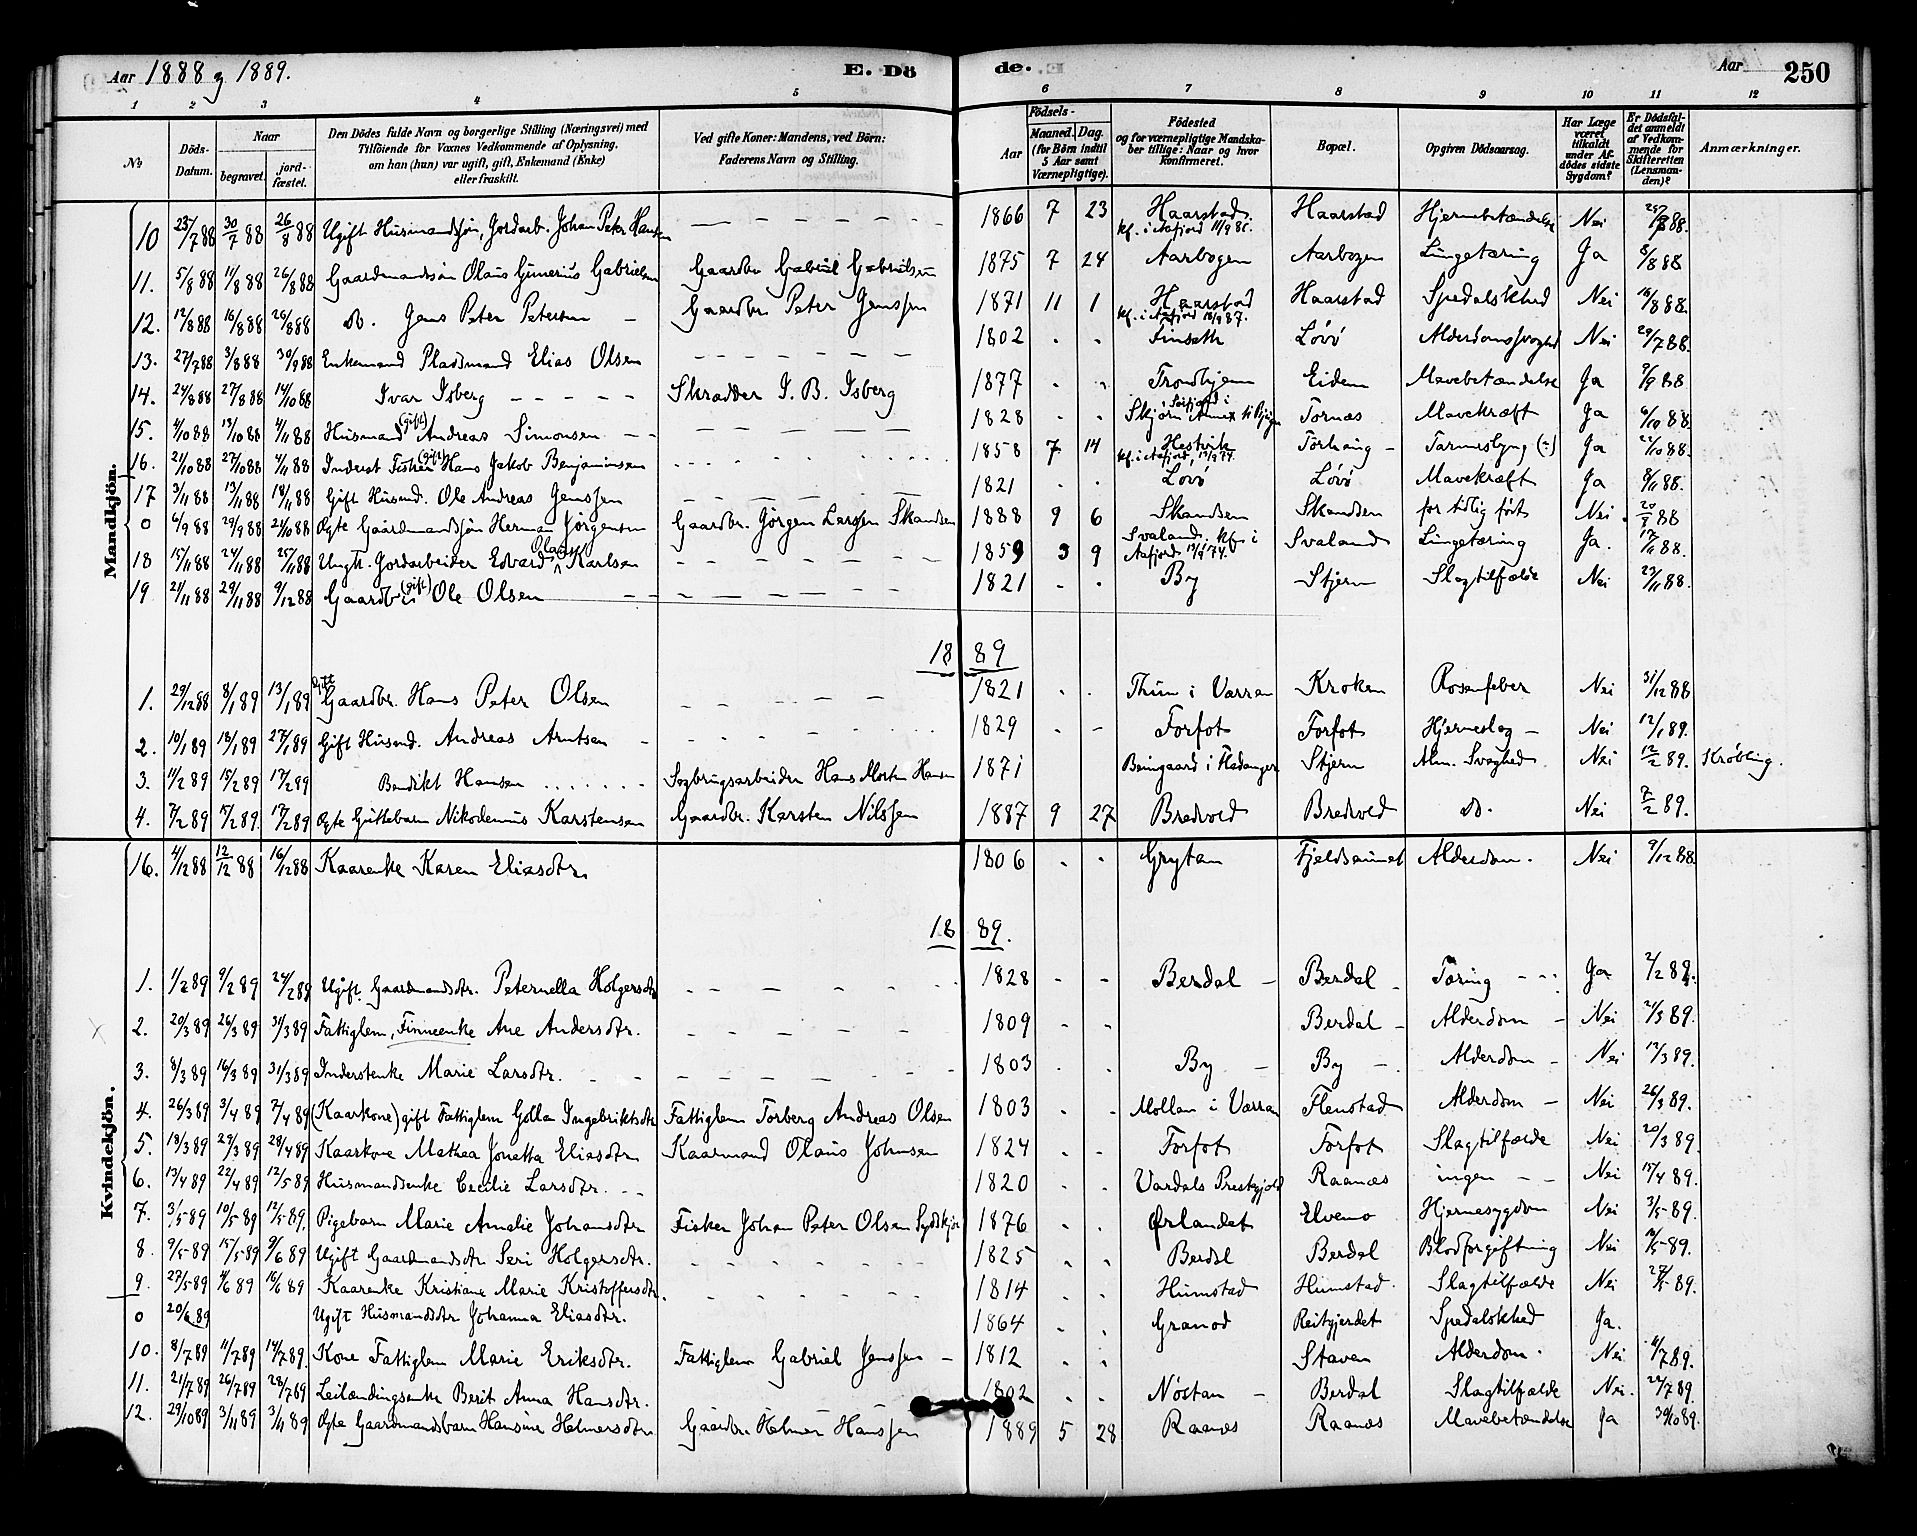 Aar 1888 og 1889. E. Dö de. Aar 250
1 2 3 4 5 6 7 8 9 10 11 12
No Döds-Datum. Naar begravet. jord-fæstet. Den Dödes fulde Navn og borgerlige Stilling (Næringsvei) med Tilföiende for Voxnes Vedkommende af Oplysning, om han (hun) var ugift, gift, Enkemand (Enke) eller fraskilt. Ved gifte Koner: Mandens, ved Börn: Faderens Navn og Stilling. Aar Födsels- Maaned. Dag. (for Börn indtil 5 Aar samt Værnepligtige). Födested og for værnepligtige Mandskaber tillige: Naar og hvor Konfirmeret. Bopæl. Opgiven Dödsaarsag. Har Læge været tilkaldt under Afdödes sidste Sygdom? Er Dödsfaldet anmeldt af Vedkommende for Skifteretten (Lensmanden)? Anmærkninger.
Mandkjön.
10 23/7 88 30/7 88 26/8 88 Ugift Husmandssøn, Jordarb. Johan Peter Hansen 1866 7 23 Haarstad. kf. i Aafjord Haarstad Hjernebetændelse Nei 88.
11. 5/8 88 11/8 88 26/8 88 Gaardmandssøn Olaus Gunerius Gabrielsen Gaardbr. Gabriel Gabrielsen 1875 7 24 Aarbogen Aarbogen Lungetæring Ja 8/8 88
12. 12/8 88 16/8 88 26/8 88 do. Jens Peter Petersen - Gaardbr. Peter Jenssen 1871 11 1 Haarstad kf. i Aafjord 18/9 87. Haarstad Spedalskhed Nei 16/8 88.
13. 27/7 88 3/8 88 30/9 88 Enkemand Pladsmand Elias Olsen 1802 Finseth Løvø Alderdomssvaghed Nei 29/7 88.
14. 24/8 88 27/8 88 14/10 88 Ivar Isberg Skrædder I. B. Isberg 1877 Trondhjem Eidem Mavebetændelse Ja 2/9 88
15. 4/10 88 13/10 88 4/11 88 Husmand (gift) Andreas Simonsen 1828 Skjørn Annex til Bjugn Tornæs Mavekræft Ja 6/10 88.
16. 21/10 88 27/10 88 4/11 88 Inderst Fisker (gift) Hans Jakob Benjaminsen 1858 7 14 Hestvik kf. i Aafjord, Torhaug - Tarmslyng (-) Ja 22/10 88.
17 3/11 88 13/11 88 18/11 88 Gift Husmd. Ole Andreas Jenssen 1821 Løvø Løvø Mavekræft Ja 8/11 88.
0 6/9 88 29/9 88 21/10 88 Ægte Gaardmandssøn Herman Jørgensen Gaardbr. Jørgen Larssen Skandsen 1888 9 6 Skandsen Skandsen for tidlig født Nei 20/9 88
18 15/11 88 24/11 88 25/11 88 Ungk. Jordarbeider Edvard Olaus Karlsen 1859 3 9 Svaland. kf. i Aafjord 74. Svaland Lungetæring Ja. 17/11 88.
19 21/11 88 29/11 88 9/12 88 Gaardbr. (gift) Ole Olsen 1821 By Stjern Slagtilfælde Nei 23/11 88.
1889
1. 29/12 88 8/1 89 13/1 89 Gift Gaardbr. Hans Peter Olsen 1821 Thun i Varran Kroken Rosenfeber Nei 31/12 88
2. 10/1 89 18/1 89 27/1 89 Gift Husmd. Andreas Arntsen - 1829 Forfot Forfot Hjerneslag - Nei 12/1 89.
3. 11/2 89 15/2 89 17/2 89 Benedikt Hansen Sagbrugsarbeider Hans Morten Hansen 1871 i Fladanger Stjern Alm. Svaghed Nei 12/2 89. Krøbling.
4. 7/2 89 15/2 89. 17/2 89 Ægte Guttebarn Nikodemus Karstensen Gaardbr. Karsten Nilssen 1887 9 27 Bredvold Bredvold do. Nei 7/2 89.
Kvindekjön.
16. 4/12 88 12/12 88 16/12 88 Kaarenke Karen Eliasdtr. 1806 Grytan Fjeldsaunet Alderdom. Nei 9/12 88
1889.
1. 1/2 89 9/2 89 24/2 89 Ugift. Gaardmandsdtr. Peternella Holgersdtr 1828 Berdal - Berdal - Tæring Ja 2/2 89.
2. 20/3 89 26/3 89 31/3 89 Fattiglem, Finneenke Ane Andersdtr. 1809 Berdal - Alderdom - Nei 21/3 89.
3. 8/3 89 16/3 89 31/3 89 Inderstenke Marie Larsdtr. 1803 By - By - Alderdom - Nei 12/3 89.
4. 26/3 89 3/4 89 7/4 89 (Kaarkone) gift Fattiglem Golla Ingebriktsdtr Fattiglem Torberg Andreas Olsen 1803 Mollan i Varran Flenstad Alderdom - Nei 26/3 89.
5. 18/3 89 29/3 89 28/4 89 Kaarkone Mathea Jonetta Eliasdtr Kaarmand Olaus Johnsen 1824 Forfot Forfot Slagtilfælde Nei 20/3 89.
6. 13/4 89 22/4 89 12/5 89 Husmandsenke Cecilie Larsdtr. 1820 Vardals Prestgjeld Raanæs ingen - - Nei 15/4 89.
7. 3/5 89 10/5 89 12/5 89. Pigebarn Marie Amalie Johansdtr Fisker Johan Peter Olsen 1876 Ørlandet Elvemo Hjernesygdom Nei 3/5 89.
8. 9/5 89 15/5 89 9/6 89 Ugift Gaardmandsdtr Seri Holgersdtr. 1825 Berdal Berdal Blodforgiftning Nei 89.
9. 27/5 89 4/6 89 16/6 89 Kaarenke Kristiane Marie Kristoffersdtr. 1814 Humstad Humstad Slagtilfælde Nei 27/5 89.
0 20/6 89 Ugift Husmandsdtr Johanna Eliasdtr. 1864 Granod Reitgjerdet Spedalskhed Ja.
10. 8/7 89 11/7 89 14/7 89. Kone Fattiglem Marie Eriksdtr. Fattiglem Gabriel Jenssen - 1812 Staven Alderdom. Nei 11/7 89.
11. 21/7 89 26/7 89 28/7 89 Leilændingsenke Berit Anna Hansdtr. 1802 Nøstan - Berdal Slagtilfælde Nei. 22/7 89.
12. 29/10 89 3/11 89 3/11 89 Ægte Gaardmandsbarn Hansine Helmersdtr Gaardbr. Helmer Hanssen 1889 5 28 Raanæs Raanæs Mavebetændelse Ja 30/10 89.